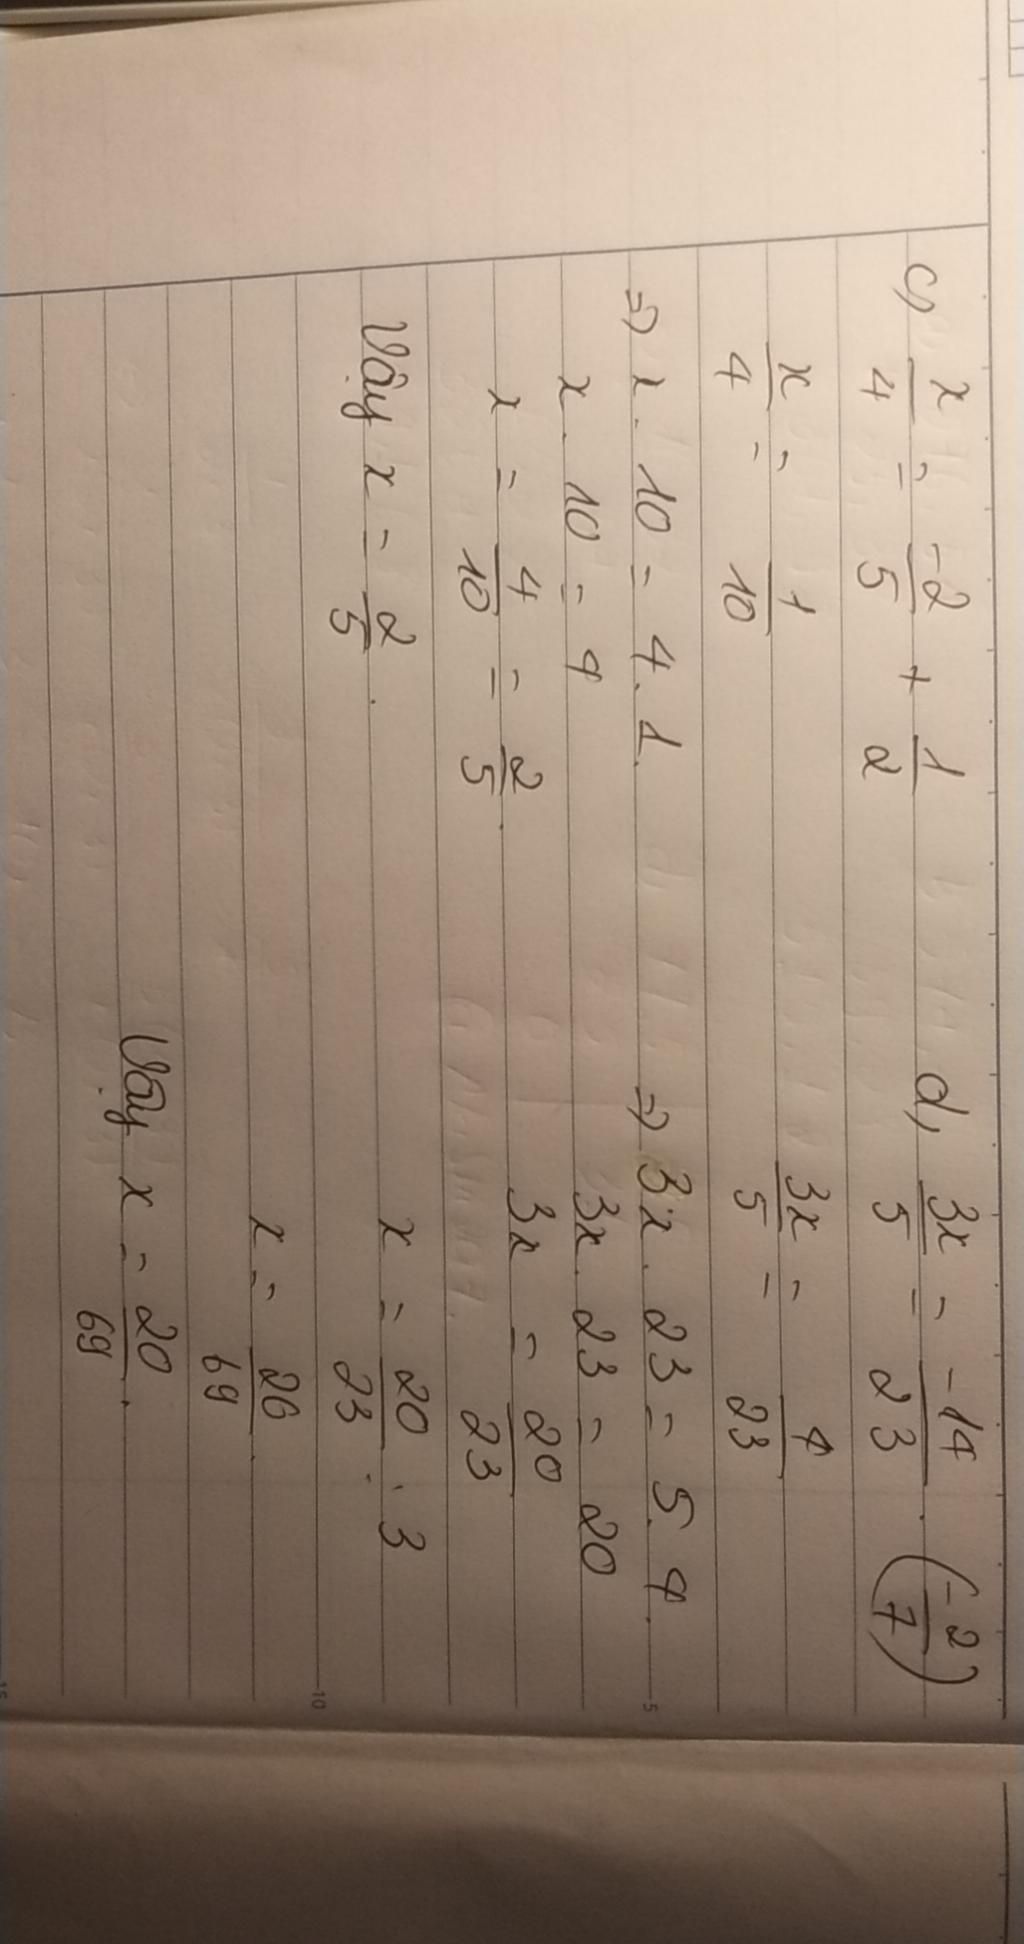 c, x/4 = -2/5 + 1/2
x/4 = 1/10
=> x . 10 = 4 . 1.
x . 10 = 4
x = 4/10 = 2/5.
Vậy x = 2/5.
d, 3x/5 = -14/23 . (-2/7)
3x/5 = 4/23
=> 3x . 23 = 5 . 4.
3x . 23 = 20
3x = 20/23
x = 20/23 . 3
x = 20/69
Vậy x = 20/69.
5
10
15